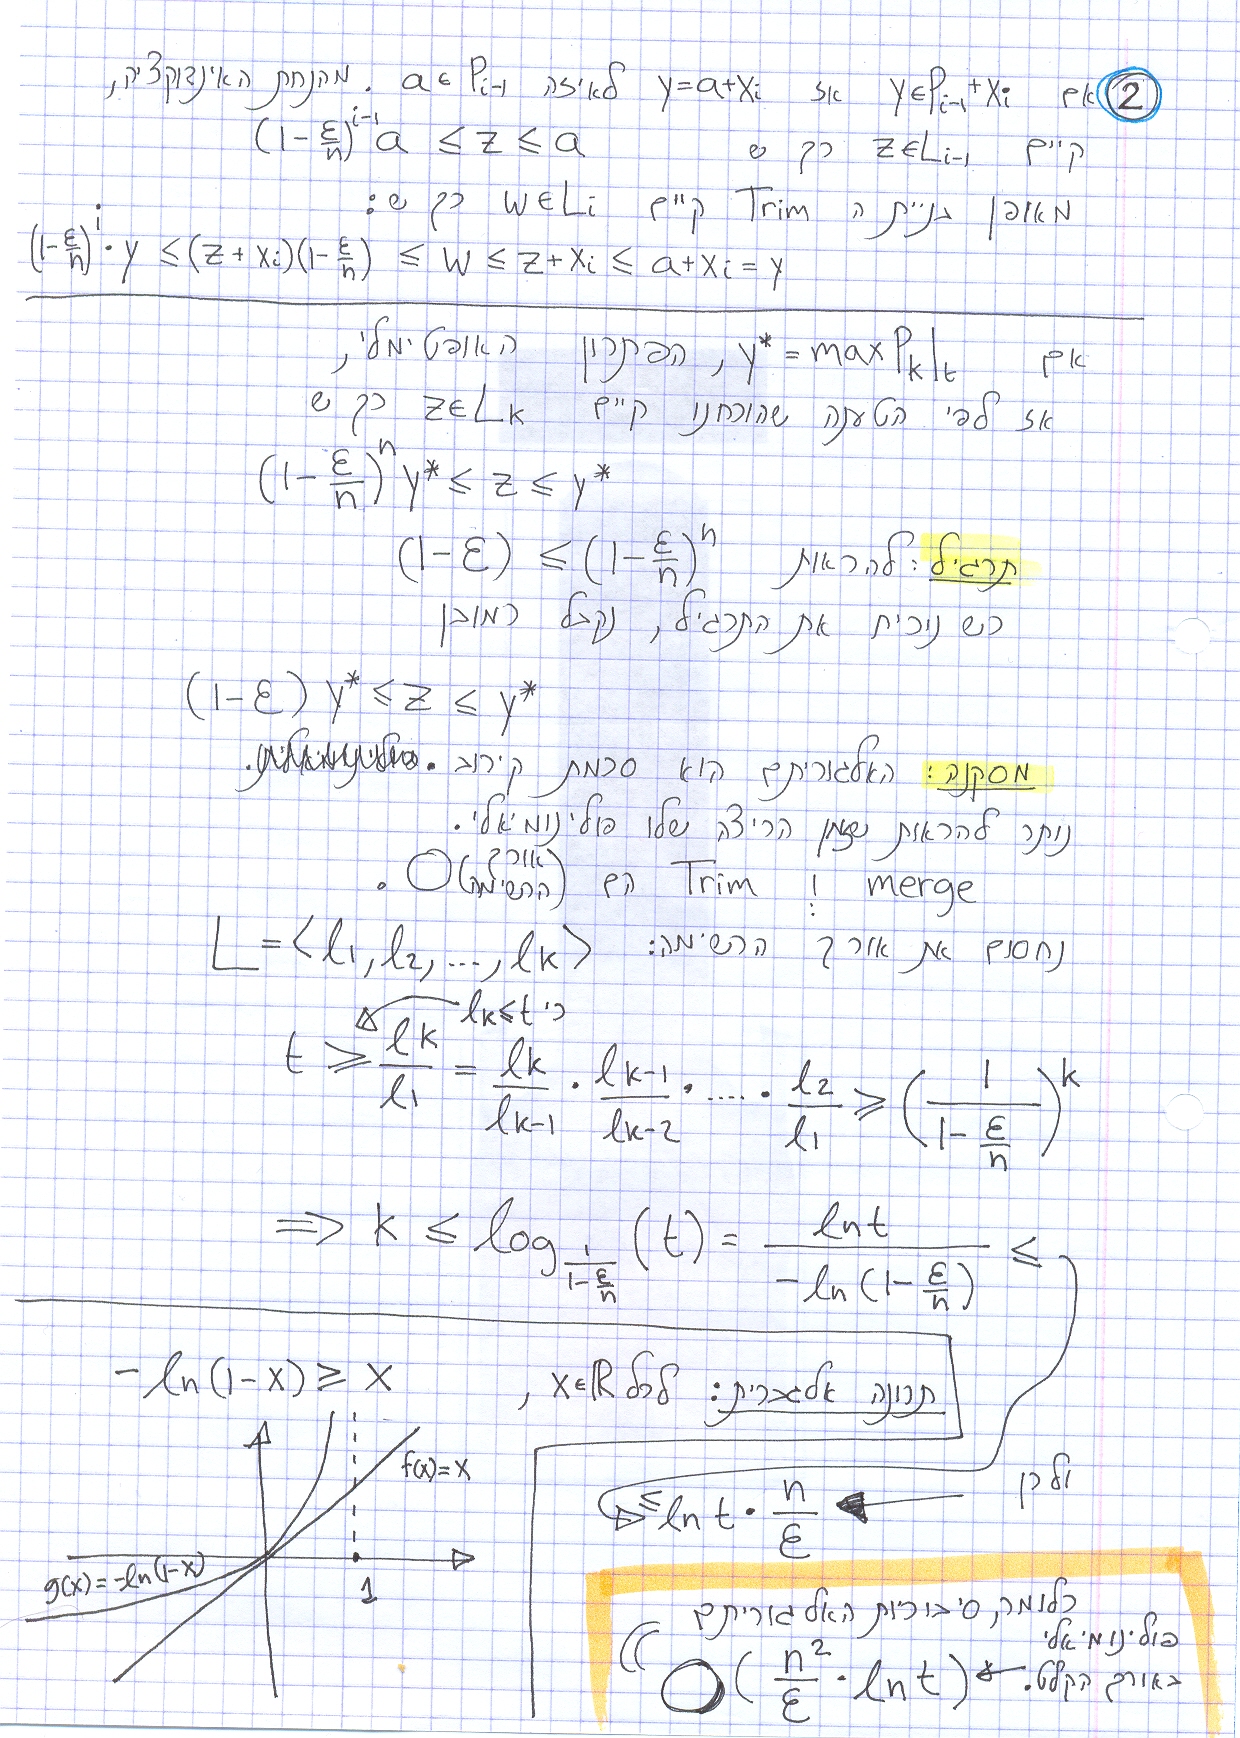 ② אם y∈P_{i-1}+x_i אז y=a+x_i לאיזה a∈P_{i-1}. מהנחת האינדוקציה,
קיים z∈L_{i-1} כך ש (1-ε/n)^{i-1} a ≤ z ≤ a
מאופן בניית ה Trim קיים w∈L_i כך ש:
(1-ε/n)^i · y ≤ (z+x_i)(1-ε/n) ≤ w ≤ z+x_i ≤ a+x_i = y
אם y* = max P_k|_t, הפתרון האופטימלי,
אז לפי הטענה שהוכחנו קיים z∈L_k כך ש
(1-ε/n)^n y* ≤ z ≤ y*
תרגיל: להראות (1-ε) ≤ (1-ε/n)^n
כש נוכיח את התרגיל, נקבל כמובן
(1-ε) y* ≤ z ≤ y*
מסקנה: האלגוריתם הוא סכמת קירוב.
נותר להראות שזמן הריצה שלו פולינומיאלי.
merge ו Trim הם O(אורך הרשימה).
נחסום את אורך הרשימה: L=<l_1, l_2, ..., l_k>
כי l_k ≤ t
t ≥ l_k/l_1 = l_k/l_{k-1} · l_{k-1}/l_{k-2} · .... · l_2/l_1 ≥ (1/(1-ε/n))^k
⇒ k ≤ log_{1/(1-ε/n)} (t) = ln t / (-ln(1-ε/n)) ≤
תכונה אלגברית: לכל x∈ℝ, -ln(1-x) ≥ x
f(x)=x
g(x)=-ln(1-x)
1
ולכן
≤ ln t · n/ε
כלומר, סיבוכיות האלגוריתם
פולינומיאלי
באורך הקלט. O(n²/ε · ln t)